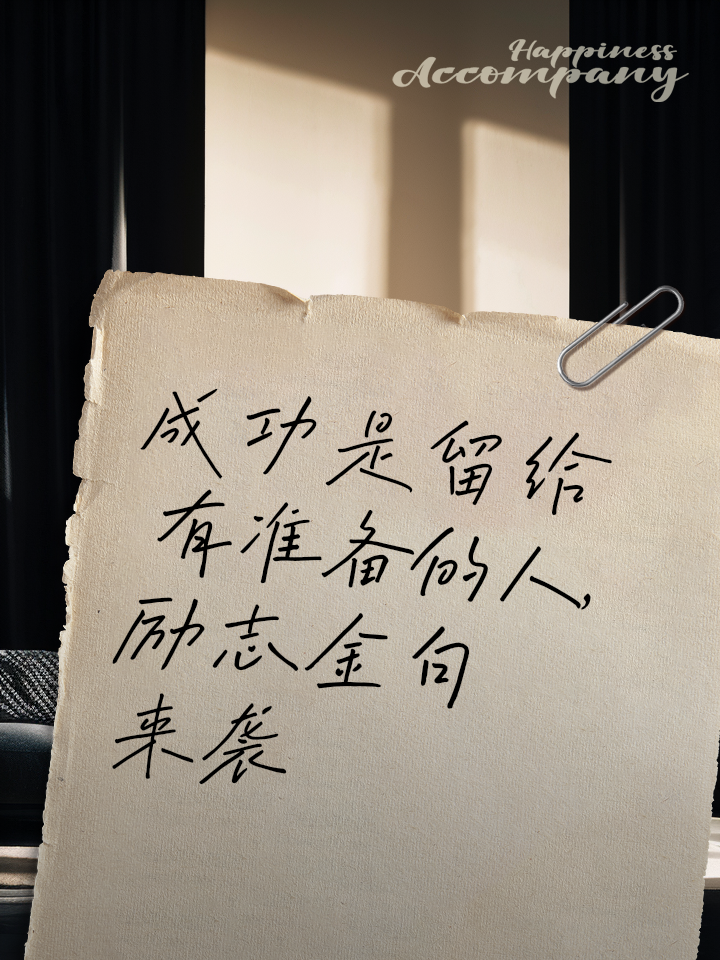 Happiness
Accompany
成功是留给
有准备的人,
励志金句
来袭